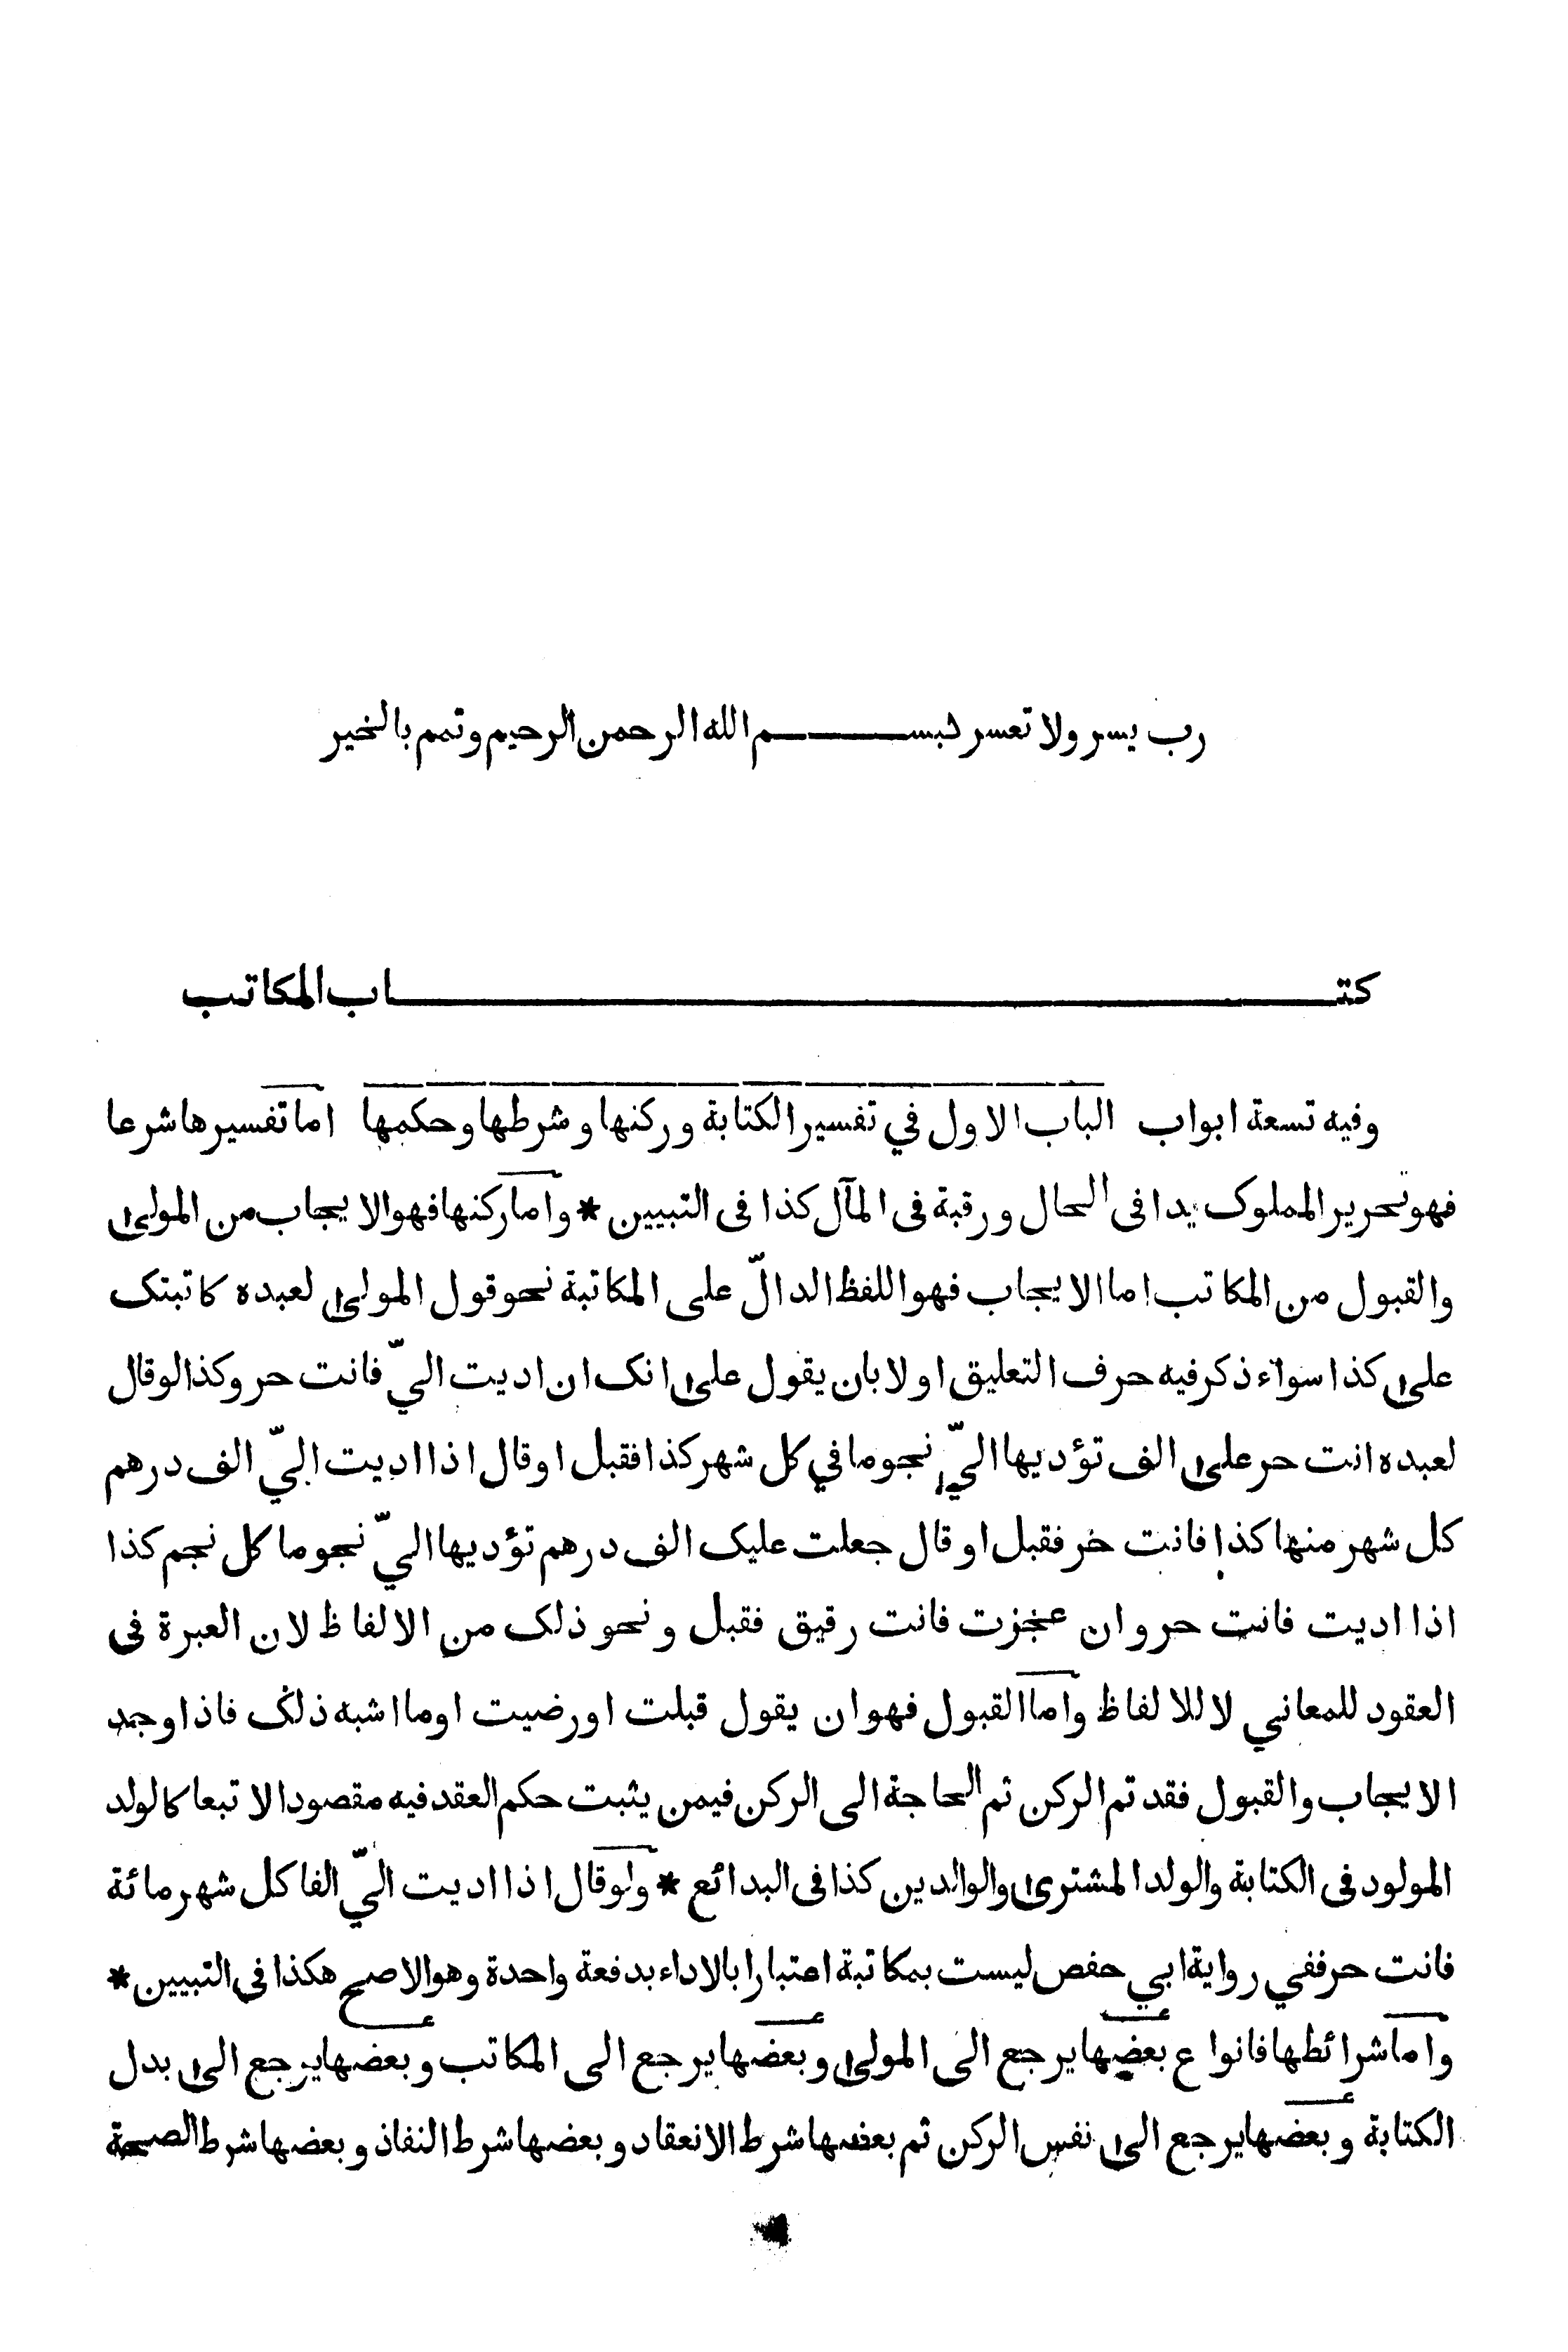 رب يسر ولا تعسر بسم الله الرحمن الرحيم وتمم بالخير
كتاب المكاتب
وفيه تسعة ابواب الباب الاول في تفسير الكتابة وركنها وشرطها وحكمها اما تفسيرها شرعا
فهو تحرير المملوك يدا فى الحال ورقبة فى المآل كذا فى التبيين * واما ركنها فهو الايجاب من المولى
والقبول من المكاتب اما الايجاب فهو اللفظ الدالّ على المكاتبة نحو قول المولى لعبده كاتبتك
على كذا سواء ذكر فيه حرف التعليق او لا بان يقول على انك ان اديت اليّ فانت حر وكذا لو قال
لعبده انت حر على الف تؤديها اليّ نجوما في كل شهر كذا فقبل او قال اذا اديت اليّ الف درهم
كل شهر منها كذا فانت حر فقبل او قال جعلت عليك الف درهم تؤديها اليّ نجوما كل نجم كذا
اذا اديت فانت حر وان عجزت فانت رقيق فقبل ونحو ذلك من الالفاظ لان العبرة فى
العقود للمعاني لا للالفاظ واما القبول فهو ان يقول قبلت او رضيت او ما اشبه ذلك فاذا وجد
الايجاب والقبول فقد تم الركن ثم الحاجة الى الركن فيمن يثبت حكم العقد فيه مقصودا لا تبعا كالولد
المولود فى الكتابة والولد المشترى والوالدين كذا فى البدائع * ولو قال اذا اديت اليّ الفا كل شهر مائة
فانت حر ففي رواية ابي حفص ليست بمكاتبة اعتبارا بالاداء بدفعة واحدة وهو الاصح هكذا فى التبيين *
واما شرائطها فانواع بعضها يرجع الى المولى وبعضها يرجع الى المكاتب وبعضها يرجع الى بدل
الكتابة وبعضها يرجع الى نفس الركن ثم بعضها شرط الانعقاد وبعضها شرط النفاذ وبعضها شرط الصحة